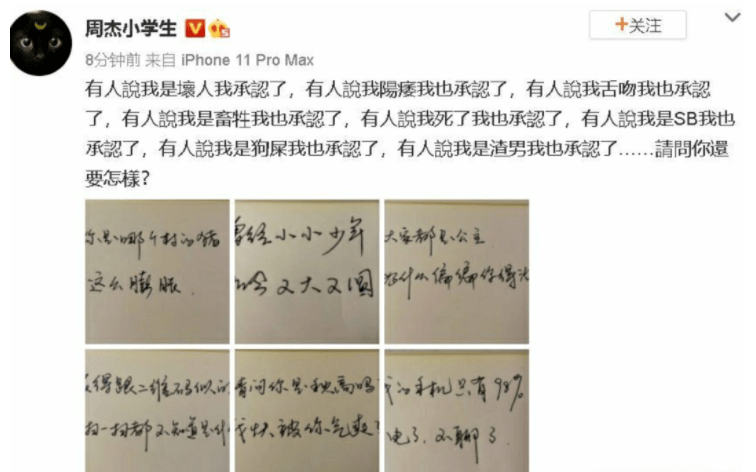 周杰小学生
+关注
8分钟前 来自 iPhone 11 Pro Max
有人說我是壞人我承認了，有人說我陽痿我也承認了，有人說我舌吻我也承認
了，有人說我是畜牲我也承認了，有人說我死了我也承認了，有人說我是SB我也
承認了，有人說我是狗屎我也承認了，有人說我是渣男我也承認了……請問你還
要怎樣？
你是哪个村的猪
这么膨胀
曾经小小少年
脸又大又圆
大家都是公主
为什么偏偏你得
得跟二维码似的
扫一扫都不知道是什
请问你是秋高吗
我快被你气爽了
我的手机只有98%
电了.不聊了.